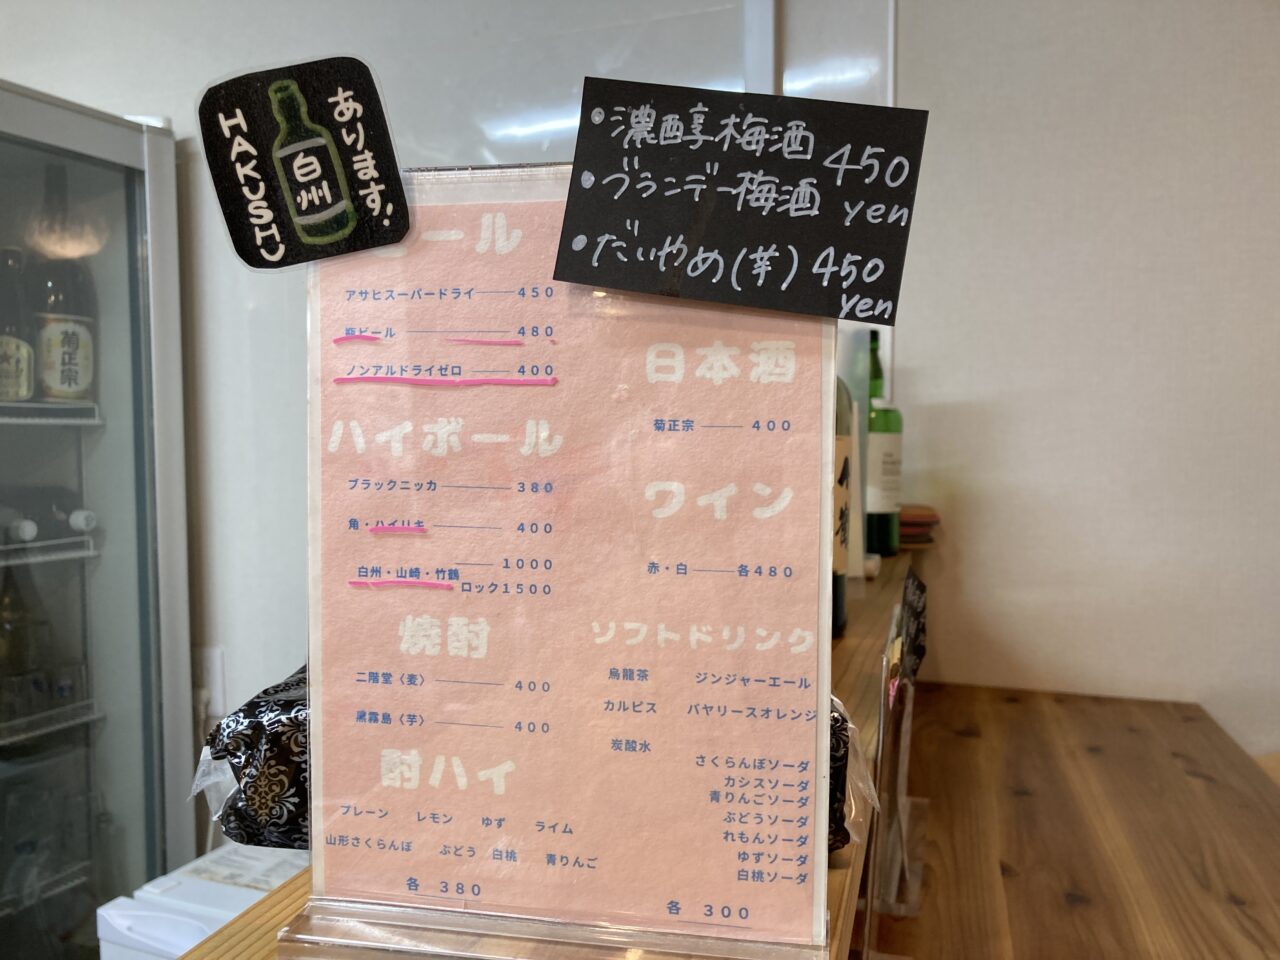 HAKUSHU
白州
あります!
・濃醇梅酒
・ブランデー梅酒 450 yen
・だいやめ(芋) 450 yen
ール
アサヒスーパードライ 450
瓶ビール 480
ノンアルドライゼロ 400
ハイボール
ブラックニッカ 380
角・ハイリキ 400
白州・山崎・竹鶴 1000
ロック1500
焼酎
二階堂〈麦〉 400
黒霧島〈芋〉 400
酎ハイ
プレーン レモン ゆず ライム
山形さくらんぼ ぶどう 白桃 青りんご
各 380
日本酒
菊正宗 400
ワイン
赤・白 各480
ソフトドリンク
烏龍茶 ジンジャーエール
カルピス バヤリースオレンジ
炭酸水
さくらんぼソーダ
カシスソーダ
青りんごソーダ
ぶどうソーダ
れもんソーダ
ゆずソーダ
白桃ソーダ
各 300
菊正宗